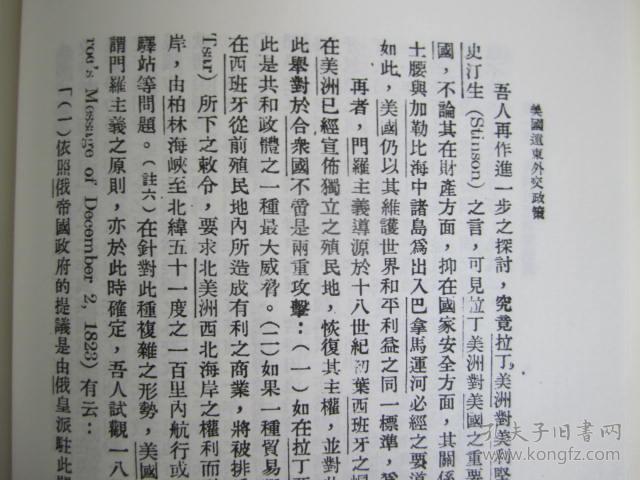 美國遠東外交政策
吾人再作進一步之探討，究竟拉丁美洲對美
史汀生 (Stinson) 之言，可見拉丁美洲對美國之重要
國，不論其在財產方面，抑在國家安全方面，其關係
土腰與加勒比海中諸島爲出入巴拿馬運河必經之要道
如此，美國仍以其維護世界和平利益之同一標準，
再者，門羅主義導源於十八世紀初葉西班牙之
在美洲已經宣佈獨立之殖民地，恢復其主權，並對
此舉對於合衆國不啻是兩重攻擊：（一）如在拉丁
此是共和政體之一種最大威脅。（二）如果一種貿易
在西班牙從前殖民地內所造成有利之商業，將被排
Tsar) 所下之敕令，要求北美洲西北海岸之權利而
岸，由柏林海峽至北緯五十一度之一百里內航行或
驛站等問題。（註六）在針對此種複雜之形勢，美國
謂門羅主義之原則，亦於此時確定，吾人試觀一八
roe's Message of December 2, 1823) 有云：
「（一）依照俄帝國政府的提議是由俄皇派駐此
孔夫子旧书网